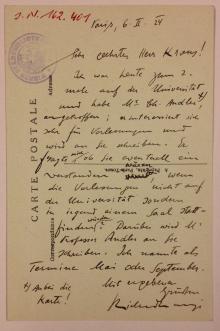 I.N. 162.401
Paris, 6. II. 24
CARTE POSTALE
Correspondance
Adresse
Sehr geehrter Herr Kraus!
Ich war heute zum 2.
male auf der Universität
und habe Mr. Ch. Andler
angetroffen; er interessiert sich
sehr für Vorlesungen und
wird an Sie schreiben. Er
fragte, ob Sie eventuell ein-
verstanden wären, wenn
die Vorlesungen nicht auf
der Universität sondern
in irgend einem Saal statt-
finden würden. Darüber wird M.
Professor Andler an Sie
schreiben. Ich nannte als
Termine Mai oder September.
Anbei die
Karte!
Mit ergebenen
Grüßen